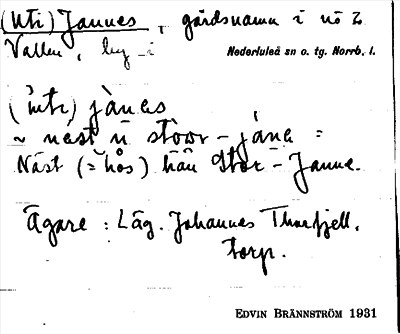 (Uti) Jannes, gårdsnamn i nö 2
Vallen, by i
Nederluleå sn o. tg. Norrb. l.
(ìnti) jànəs
~ nést n̄ stòor-jánə =
Näst (= hos) hän Stor-Janne.
Ägare: Läg. Johannes Thorfjell,
torp.
EDVIN BRÄNNSTRÖM 1931